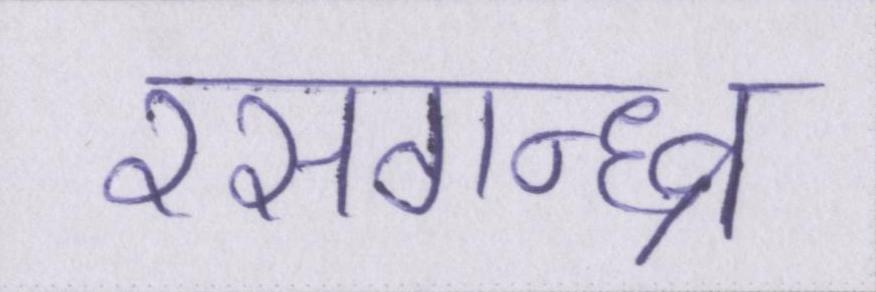 रसगन्ध्र